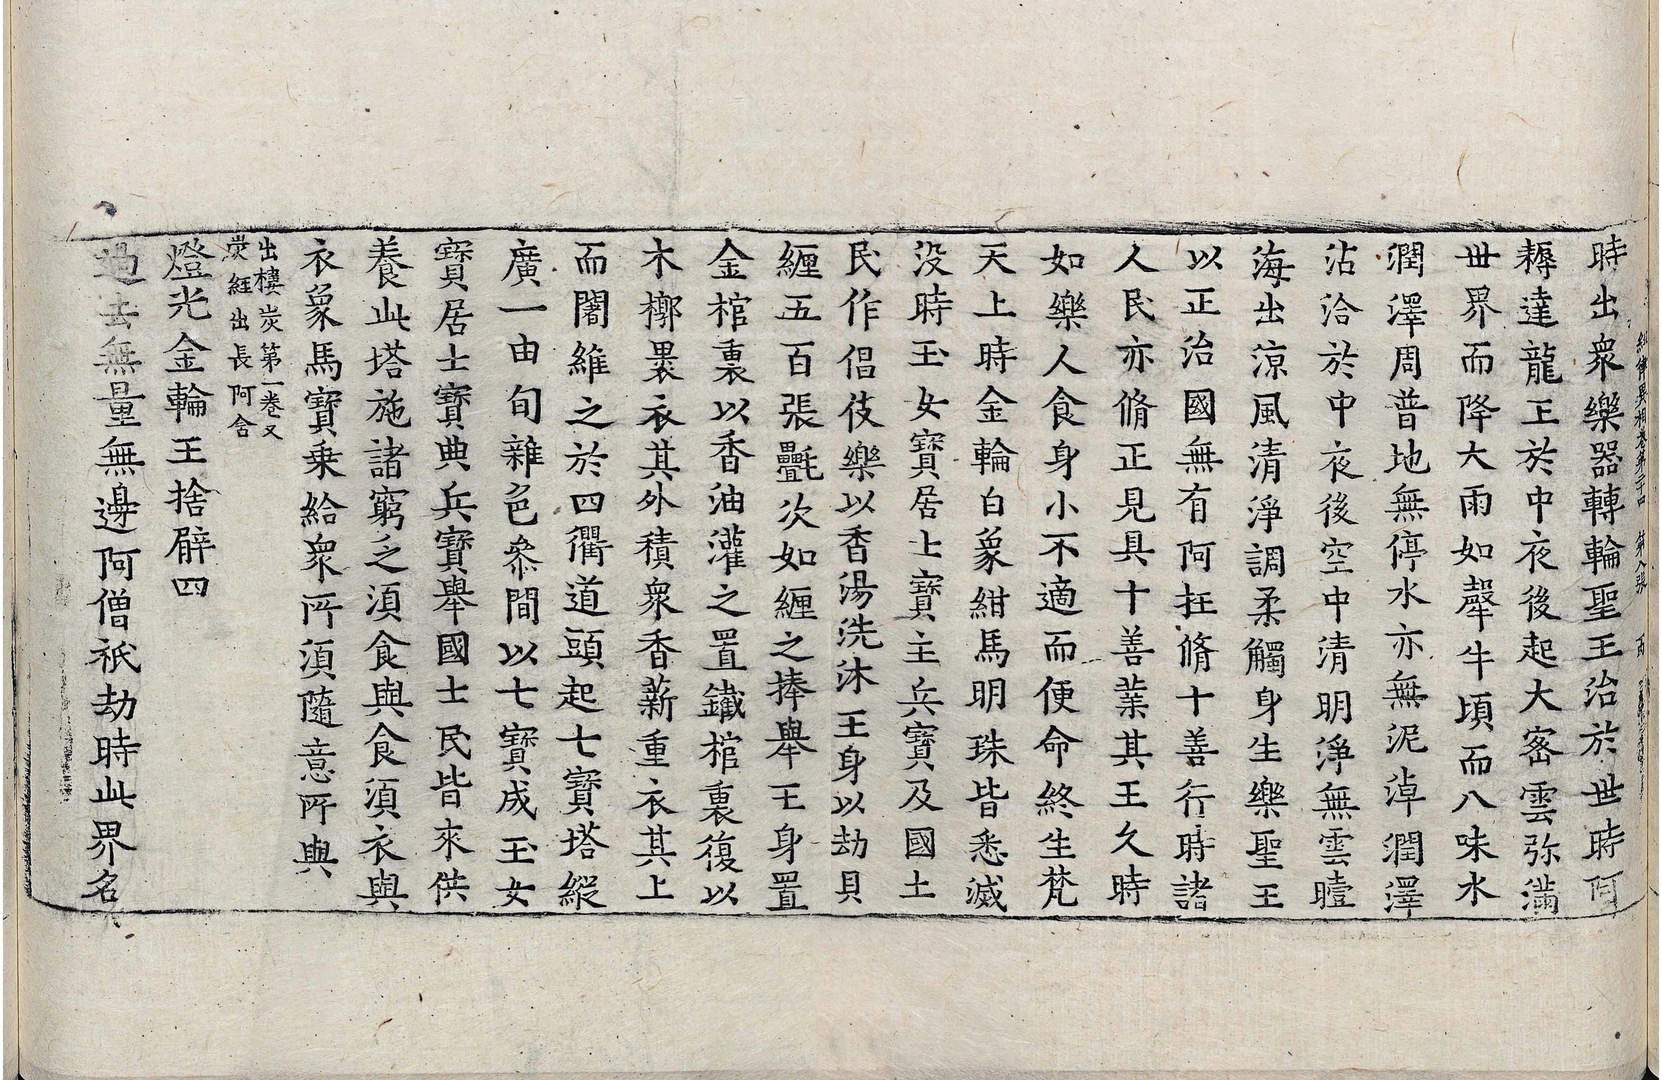 經律異相卷第二十四 第八張 丙
時出衆樂器轉輪聖王治於世時阿
耨達龍王於中夜後起大密雲弥滿
世界而降大雨如𤛓牛頃而八味水
潤澤周普地無停水亦無泥淖潤澤
沾洽於中夜後空中清明淨無雲曀
海出涼風清淨調柔觸身生樂聖王
以正治國無有阿抂脩十善行時諸
人民亦脩正見具十善業其王久時
如樂人食身小不適而便命終生梵
天上時金輪白象紺馬明珠皆悉滅
没時玉女寶居士寶主兵寶及國土
民作倡伎樂以香湯洗沐王身以劫貝
纒五百張㲲次如纒之捧舉王身置
金棺裏以香油灌之置鐵棺裏復以
木槨褁衣其外積衆香薪重衣其上
而闍維之於四衢道頭起七寶塔縱
廣一由旬雜色叅間以七寶成玉女
寶居士寶典兵寶舉國士民皆來供
養此塔施諸窮乏湏食與食湏衣與
衣象馬寶乗給衆所湏隨意所與
出樓炭第一卷又
炭經出長阿含
燈光金輪王捨臂四
過去無量無邊阿僧祇劫時此界名